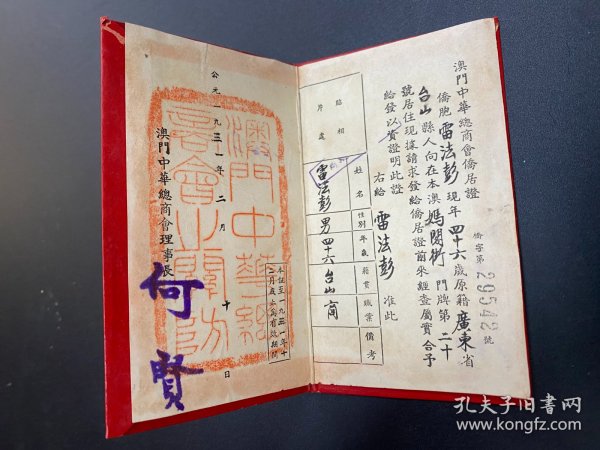 澳門中華總商會僑居證
僑字第29542號
僑胞雷法彭現年四十六歲原籍廣東省
台山縣人向在本澳媽閣街門牌第二十
號居住現據請求發給僑居證前來經查屬實合予
給發以資證明此證
右給雷法彭准此
貼相片處
姓名
性別
年歲
籍貫
職業
備考
雷法彭
男
四十六
台山
商
本証至一九五一年十
二月底止為有效期間
澳門中華總
商會之關防
公元一九五一年二月十日
澳門中華總商會理事長
何賢
孔夫子旧书网
www.kongfz.com